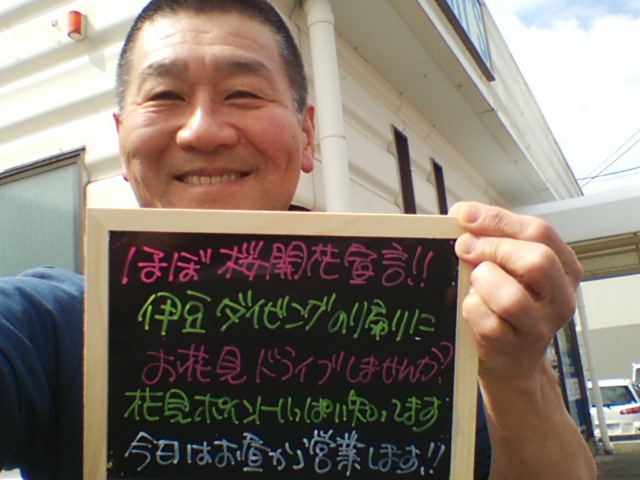 ほぼ桜開花宣言!!
伊豆ダイビングの帰りに
お花見ドライブしませんか?
花見ポイントいっぱい知ってます
今日はお昼から営業します!!